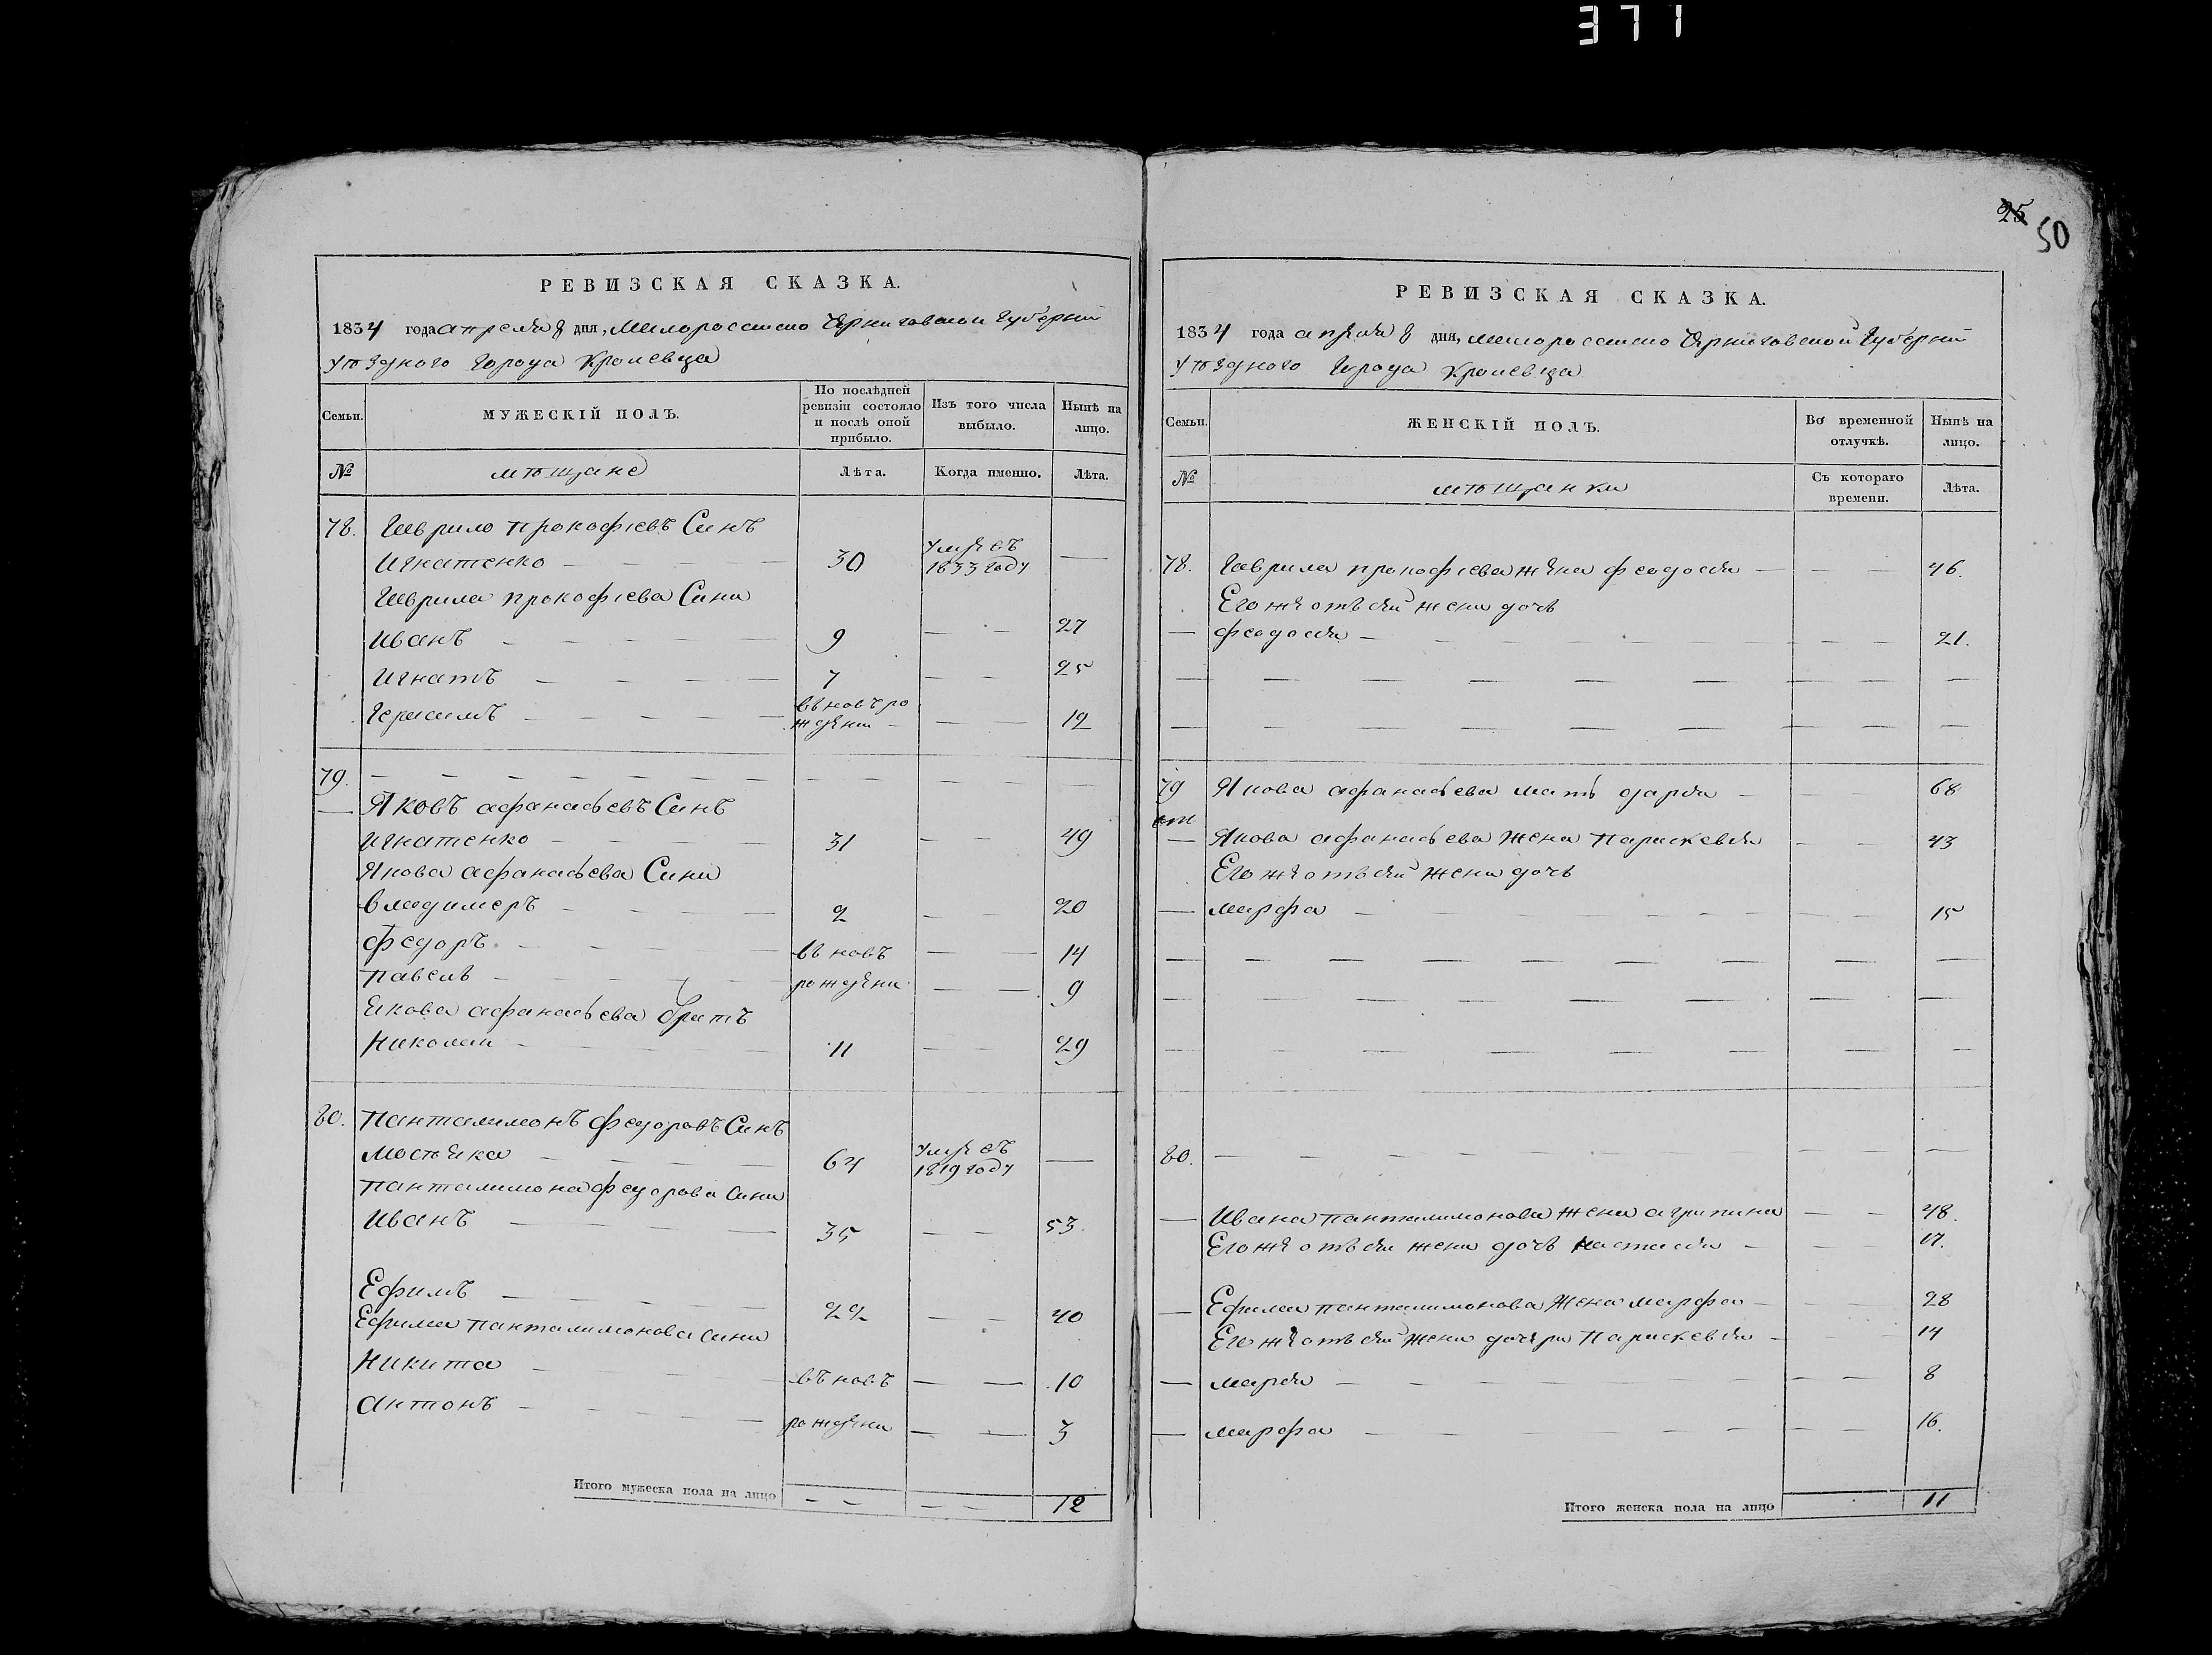 371
25
50
РЕВИЗСКАЯ СКАЗКА.
1834 года апреля 8 дня, Малороссийско Черниговской Губернии
уѣзднаго Города Кролевца
Семьи.
МУЖЕСКІЙ ПОЛЪ.
По послѣдней ревизіи состояло и послѣ оной прибыло.
Изъ того числа выбыло.
Нынѣ на лицо.
№
мѣщане
Лѣта.
Когда именно.
Лѣта.
78. Гаврило прокофіевъ Синъ
Игнатенко 30 умре въ 1833 году
Гаврила прокофіева Сини
Иванъ 9 27
Игнатъ 7 25
Герасимъ вновъ рождени 12
79.
Яковъ афанасьевъ Синъ
Игнатенко 31 49
Якова афанасьева Сини
владимеръ 2 20
федоръ вновъ 14
павелъ рождени 9
Якова афанасьева братъ
Николаи 11 29
80. пантелимонъ федоровъ Синъ
64 умре въ 1819 году
пантелимона федорова Сини
Иванъ 35 53.
Ефимъ 22 40
Ефима пантелимонова Сини
Никита въновъ 10
Антонъ рождени 3
Итого мужеска пола на лицо 12
РЕВИЗСКАЯ СКАЗКА.
1834 года апреля 8 дня, малороссийско Черниговской Губернии
уѣзднаго Города Кролевца
Семьи.
ЖЕНСКІЙ ПОЛЪ.
Во временной отлучкѣ.
Нынѣ на лицо.
№
мѣщанки
Съ котораго времени.
Лѣта.
78. Гаврила прокофіева жена феодосія 46.
Его же отъ сей жени дочь
феодосія 21.
79 Якова афанасьева мать дарія 68
Якова афанасьева жена параскевія 43
Его же отъ сей жени дочь
марфа 15
80.
Ивана пантелимонова жена агрипина 48.
Его же отъ сей жени дочь настасія 17.
Ефима пантелимонова жена марфа 28
Его же отъ сей жени дочери параскевія 14
марія 8
марфа 16.
Итого женска пола на лицо 11